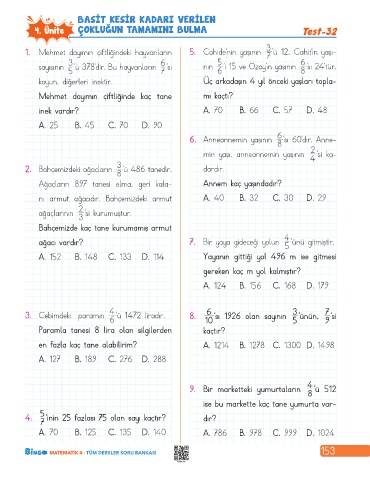 4. Ünite
BASİT KESİR KADARI VERİLEN
ÇOKLUĞUN TAMAMINI BULMA
Test-32
1. Mehmet dayımın çiftliğindeki hayvanların
sayısının 3/5'ü 378'dir. Bu hayvanların 6/7'sı
koyun, diğerleri inektir.
Mehmet dayımın çiftliğinde kaç tane
inek vardır?
A. 25 B. 45 C. 70 D. 90
2. Bahçemizdeki ağaçların 3/8'ü 486 tanedir.
Ağaçların 897 tanesi elma, geri kala-
nı armut ağacıdır. Bahçemizdeki armut
ağaçlarının 2/3'si kurumuştur.
Bahçemizde kaç tane kurumamış armut
ağacı vardır?
A. 152 B. 148 C. 133 D. 114
3. Cebimdeki paramın 4/6'ü 1472 liradır.
Paramla tanesi 8 lira olan silgilerden
en fazla kaç tane alabilirim?
A. 127 B. 189 C. 276 D. 288
4. 5/7'inin 25 fazlası 75 olan sayı kaçtır?
A. 70 B. 125 C. 135 D. 140
5. Cahide'nin yaşının 3/7'ü 12, Cahit'in yaşı-
nın 5/6'i 15 ve Ozay'ın yaşının 6/8'sı 24'tür.
Üç arkadaşın 4 yıl önceki yaşları topla-
mı kaçtı?
A. 70 B. 66 C. 57 D. 48
6. Anneannemin yaşının 6/8'sı 60'dır. Anne-
min yaşı, anneannemin yaşının 2/4'si ka-
dardır.
Annem kaç yaşındadır?
A. 40 B. 32 C. 30 D. 29
7. Bir yaya gideceği yolun 4/5'ünü gitmiştir.
Yayanın gittiği yol 496 m ise gitmesi
gereken kaç m yol kalmıştır?
A. 124 B. 156 C. 168 D. 179
8. 6/10'sı 1926 olan sayının 3/5'ünün, 7/9'si
kaçtır?
A. 1214 B. 1278 C. 1300 D. 1498
9. Bir marketteki yumurtaların 4/8'ü 512
ise bu markette kaç tane yumurta var-
dır?
A. 786 B. 978 C. 999 D. 1024
BİNGO MATEMATİK 4 - TÜM DERSLER SORU BANKASI
153